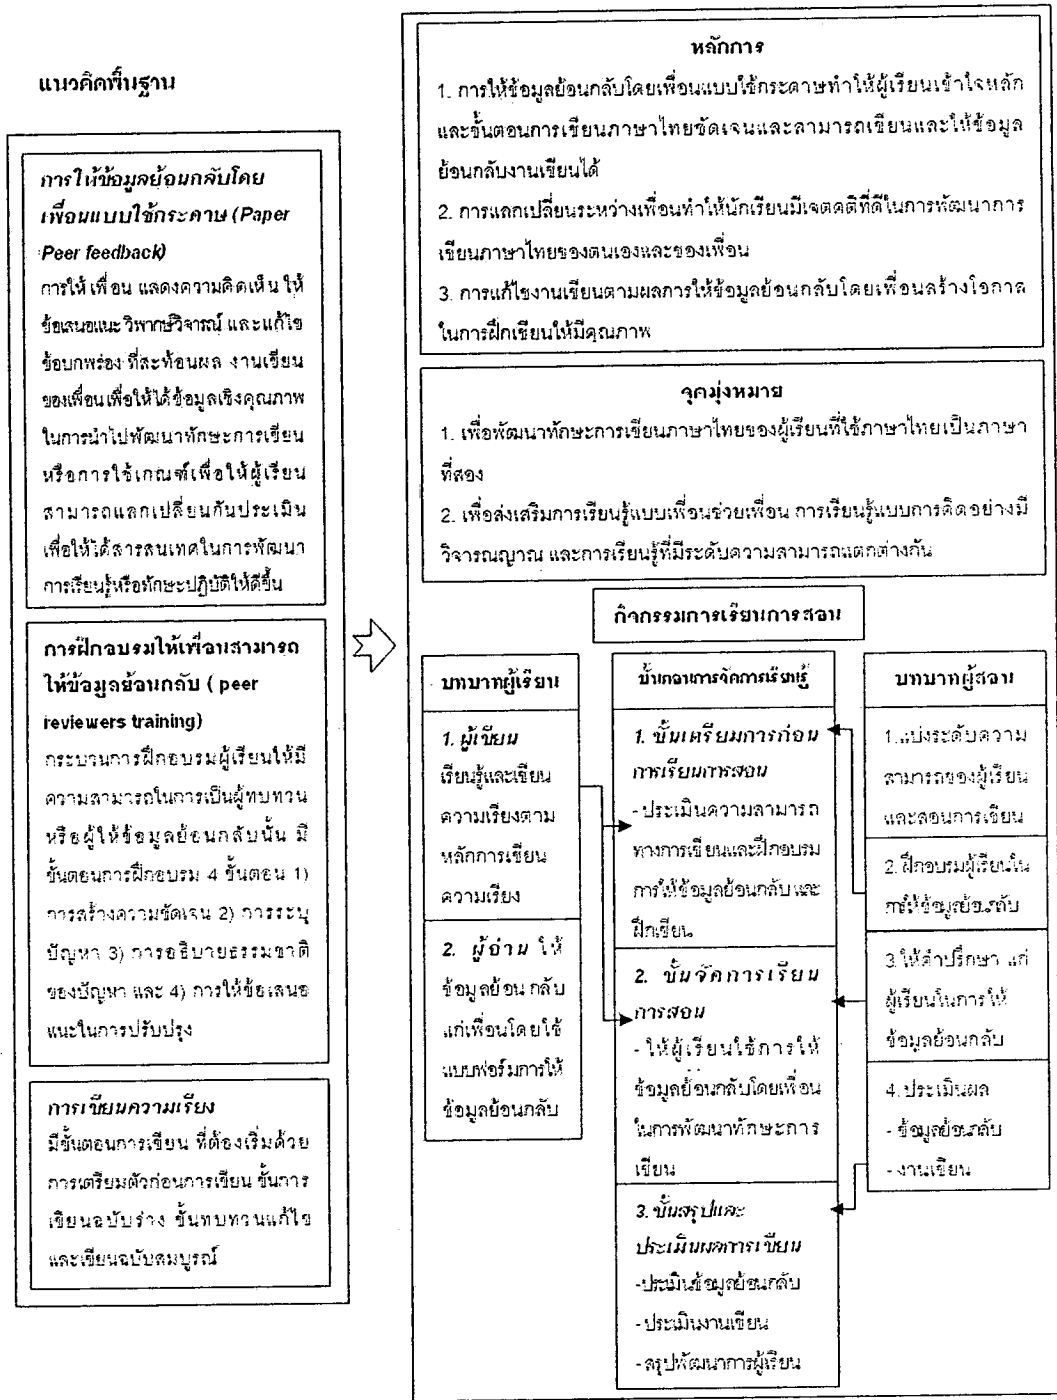 แนวคิดพื้นฐาน
การให้ข้อมูลย้อนกลับโดย
เพื่อนแบบใช้กระดาษ (Paper
Peer feedback)
การให้ เพื่อน แสดงความคิดเห็น ให้
ข้อเสนอแนะ วิพากษ์วิจารณ์ และแก้ไข
ข้อบกพร่อง ที่สะท้อนผล งานเขียน
ของเพื่อน เพื่อให้ได้ข้อมูลเชิงคุณภาพ
ในการนำไปพัฒนาทักษะการเขียน
หรือการใช้เกณฑ์เพื่อให้ผู้เรียน
สามารถแลกเปลี่ยนกันประเมิน
เพื่อให้ได้สารสนเทศในการพัฒนา
การเรียนรู้หรือทักษะปฏิบัติให้ดีขึ้น
การฝึกอบรมให้เพื่อนสามารถ
ให้ข้อมูลย้อนกลับ ( peer
reviewers training)
กระบวนการฝึกอบรมผู้เรียนให้มี
ความสามารถในการเป็นผู้ทบทวน
หรือผู้ให้ข้อมูลย้อนกลับนั้น มี
ขั้นตอนการฝึกอบรม 4 ขั้นตอน 1)
การสร้างความชัดเจน 2) การระบุ
ปัญหา 3) การอธิบายธรรมชาติ
ของปัญหา และ 4) การให้ข้อเสนอ
แนะในการปรับปรุง
การเขียนความเรียง
มีขั้นตอนการเขียน ที่ต้องเริ่มด้วย
การเตรียมตัวก่อนการเขียน ขั้นการ
เขียนฉบับร่าง ขั้นทบทวนแก้ไข
และเขียนฉบับสมบูรณ์
หลักการ
1. การให้ข้อมูลย้อนกลับโดยเพื่อนแบบใช้กระดาษทำให้ผู้เรียนเข้าใจหลัก
และขั้นตอนการเขียนภาษาไทยชัดเจนและสามารถเขียนและให้ข้อมูล
ย้อนกลับงานเขียนได้
2. การแลกเปลี่ยนระหว่างเพื่อนทำให้นักเรียนมีเจตคติที่ดีในการพัฒนาการ
เขียนภาษาไทยของตนเองและของเพื่อน
3. การแก้ไขงานเขียนตามผลการให้ข้อมูลย้อนกลับโดยเพื่อนสร้างโอกาส
ในการฝึกเขียนให้มีคุณภาพ
จุดมุ่งหมาย
1. เพื่อพัฒนาทักษะการเขียนภาษาไทยของผู้เรียนที่ใช้ภาษาไทยเป็นภาษา
ที่สอง
2. เพื่อส่งเสริมการเรียนรู้แบบเพื่อนช่วยเพื่อน การเรียนรู้แบบการคิดอย่างมี
วิจารณญาณ และการเรียนรู้ที่มีระดับความสามารถแตกต่างกัน
กิจกรรมการเรียนการสอน
บทบาทผู้เรียน
1. ผู้เขียน
เรียนรู้และเขียน
ความเรียงตาม
หลักการเขียน
ความเรียง
2. ผู้อ่าน ให้
ข้อมูลย้อน กลับ
แก่เพื่อนโดยใช้
แบบฟอร์มการให้
ข้อมูลย้อนกลับ
ขั้นตอนการจัดการเรียนรู้
1. ขั้นเตรียมการก่อน
การเรียนการสอน
- ประเมินความสามารถ
ทางการเขียนและฝึกอบรม
การให้ข้อมูลย้อนกลับ และ
ฝึกเขียน
2. ขั้นจัดการเรียน
การสอน
- ให้ผู้เรียนใช้การให้
ข้อมูลย้อนกลับโดยเพื่อน
ในการพัฒนาทักษะการ
เขียน
3. ขั้นสรุปและ
ประเมินผลการเขียน
-ประเมินข้อมูลย้อนกลับ
-ประเมินงานเขียน
-สรุปพัฒนาการผู้เรียน
บทบาทผู้สอน
1.แบ่งระดับความ
สามารถของผู้เรียน
และสอนการเขียน
2.ฝึกอบรมผู้เรียนใน
การให้ข้อมูลย้อนกลับ
3.ให้คำปรึกษา แก่
ผู้เรียนในการให้
ข้อมูลย้อนกลับ
4.ประเมินผล
- ข้อมูลย้อนกลับ
- งานเขียน